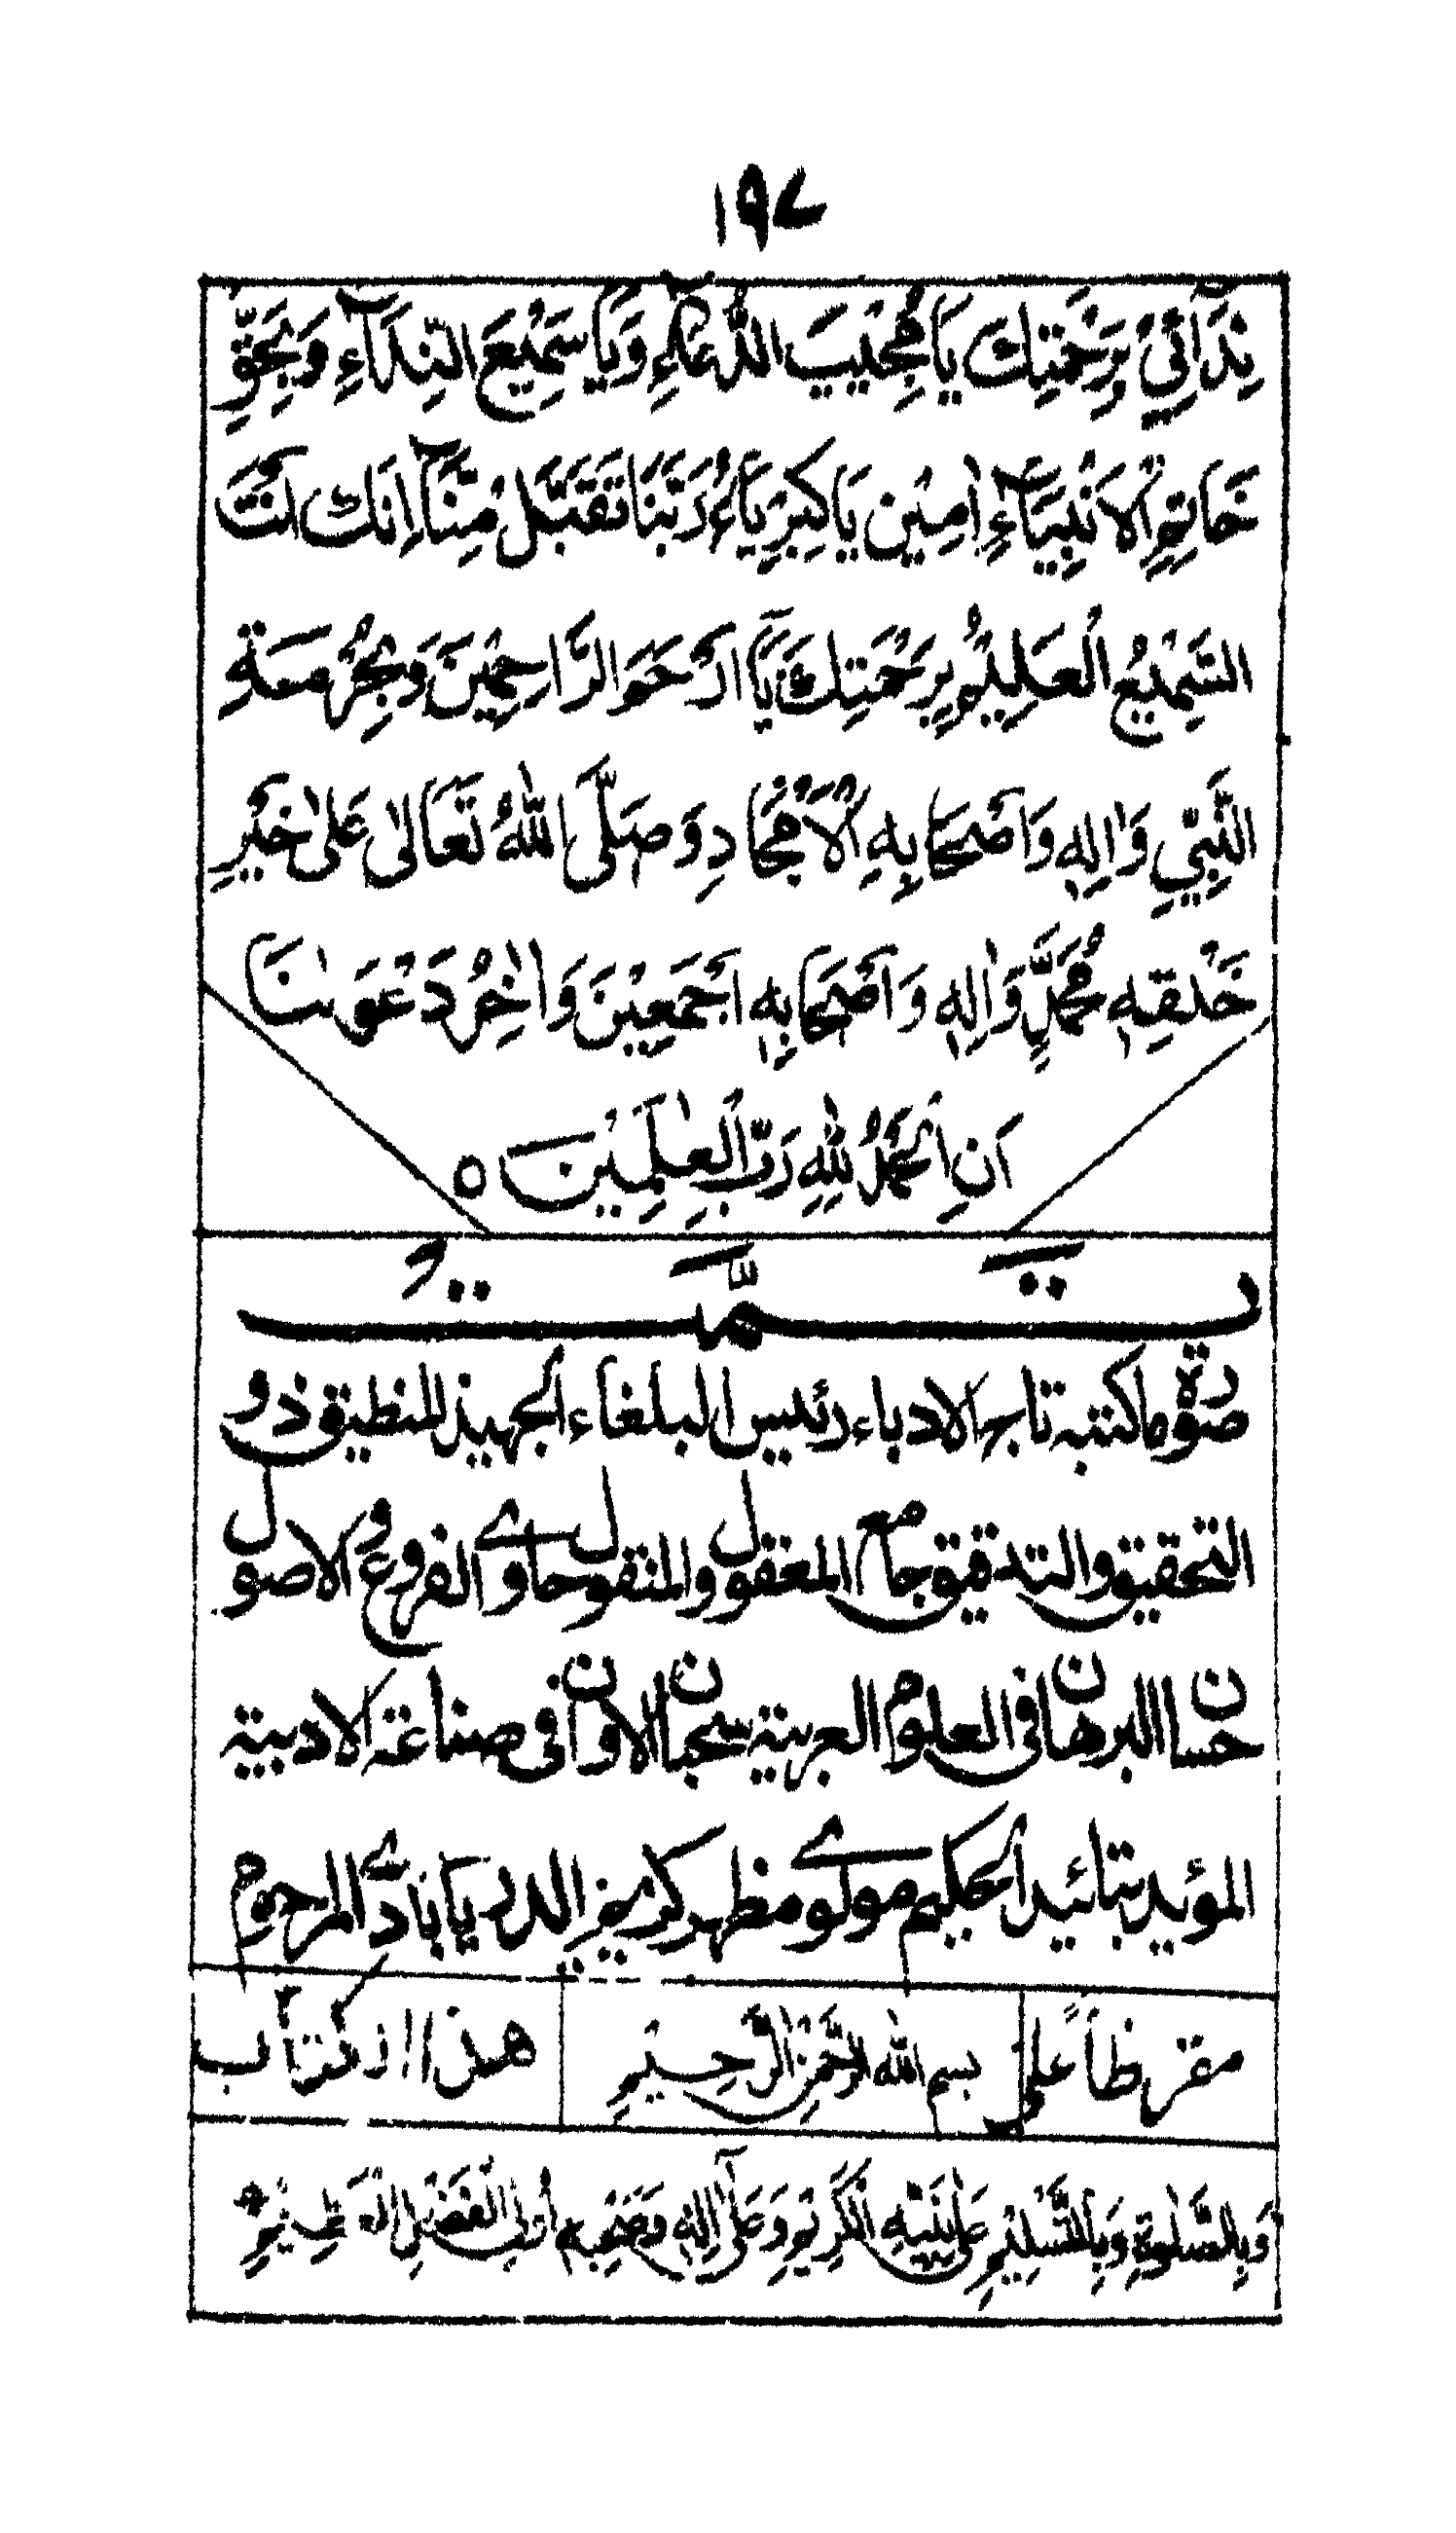 ۱۹۷
نِدَآئِيْ بِرَحْمَتِكَ يَا مُجِيْبَ الدُّعَآءِ وَيَا سَمِيْعَ النِّدَآءِ وَبِحَقِّ
خَاتِمِ الْاَنْبِيَآءِ اٰمِيْن يَا كِبْرِيَاءُ رَبَّنَا تَقَبَّلْ مِنَّآ اِنَّكَ اَنْتَ
السَّمِيْعُ الْعَلِيْمُ بِرَحْمَتِكَ يَآ اَرْحَمَ الرَّاحِمِيْنَ وَبِحُرْمَةِ
النَّبِيِّ وَاٰلِهٖ وَاَصْحَابِهِ الْاَمْجَادِ وَصَلَّى اللّٰهُ تَعَالٰى عَلٰى خَيْرِ
خَلْقِهٖ مُحَمَّدٍ وَّاٰلِهٖ وَاَصْحَابِهٖ اَجْمَعِيْنَ وَاٰخِرُ دَعْوٰنَا
اَنِ الْحَمْدُ لِلّٰهِ رَبِّ الْعٰلَمِيْنَ ○
تَمَّتْ
صورة ما كتبه تاج الادباء رئيس البلغاء الجهبيذ المنطيق ذو
التحقيق والتدقيق جامع المعقول والمنقول حاوے الفروع والاصول
حسان البرهان فى العلوم العربية سحبان الاوان فى صناعة الادبية
المؤيد بتائيد الحكيم مولوے مظهر كريم الدريابادے المرحوم
مقرظاً على بسم الله الرَّحْمٰنِ الرَّحِيْمِ هذا الكتاب
وَبِالصَّلٰوةِ وَبِالتَّسْلِيْمِ عَلٰى نَبِيِّهِ الْكَرِيْمِ وَعَلٰٓى اٰلِهٖ وَصَحْبِهٖ اُولِى الْفَضْلِ الْعَمِيْمِ